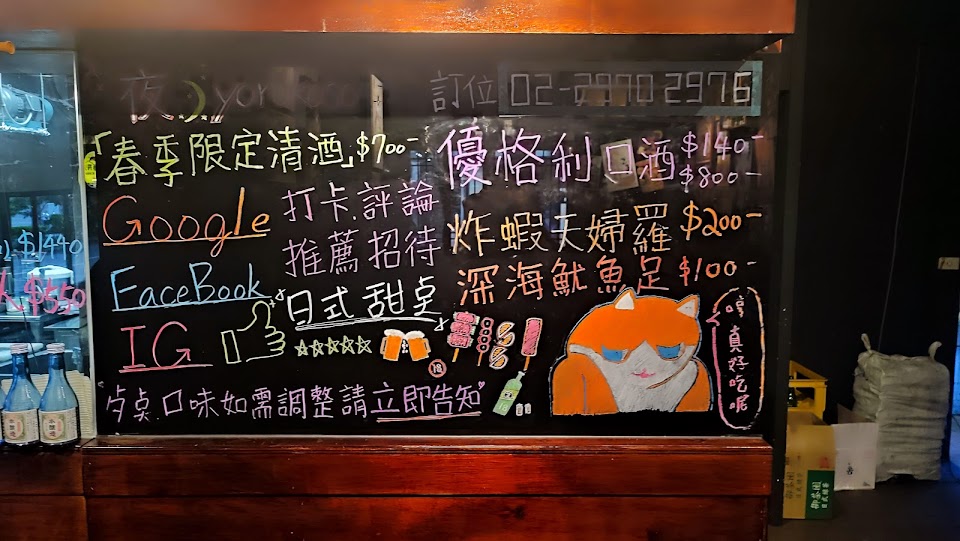 夜 yoru
訂位 02-2970 2976
「春季限定清酒」$700-
優格利口酒 $140-
$800-
Google
打卡.評論
炸蝦天婦羅 $200-
推薦招待
FaceBook
深海魷魚足 $100-
日式甜点
IG
☆☆☆☆☆
18
哼真好吃呢
"歺点口味如需調整請立即告知"
$1440
$550